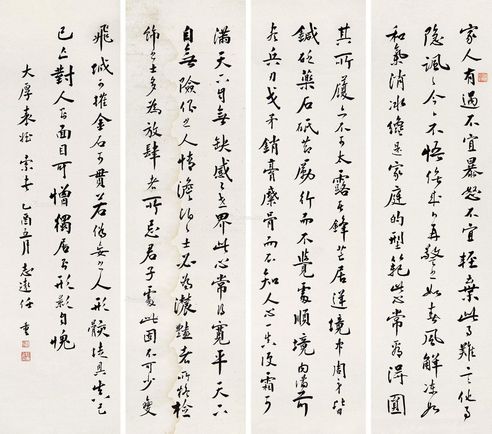 家人有過不宜暴怒不宜輕棄此事難言他事
隱諷之今日不悟俟來日再警之如春風解凍如
和氣消冰纔是家庭的型範此心常看得圓
其所履亦不可太露其鋒芒居逆境中周身皆
鍼砭藥石砥節勵行而不覺處順境內滿前
盡兵刃戈矛銷膏縻骨而不知人心一真便霜可
滿天下自無缺陷之世界此心常放得寬平天下
自無險仄之人情澹泊之士必為濃豔者所疑檢
飭之士多為放肆者所忌君子處此固不可少變
飛城可摧金石可貫若偽妄之人形骸徒具真
已亡對人則面目可憎獨居則形影自愧
大厚表姪索書 乙酉五月 志遠任重